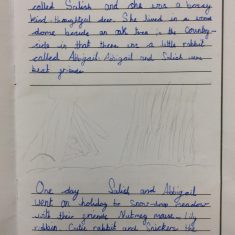 called Salish and she was a bossy
kind thoughtful deer. She lived in a wood
dome beside an oak tree in the country-
side in that there was a little rabbit
called Abbigail. Abbigail and Salish were
best friends
One day Salish and Abbigail
went on holiday to snow-drop meadow
with their friends Nutmeg mouse, Lily
robbin, Cutie rabbit and Snickers the